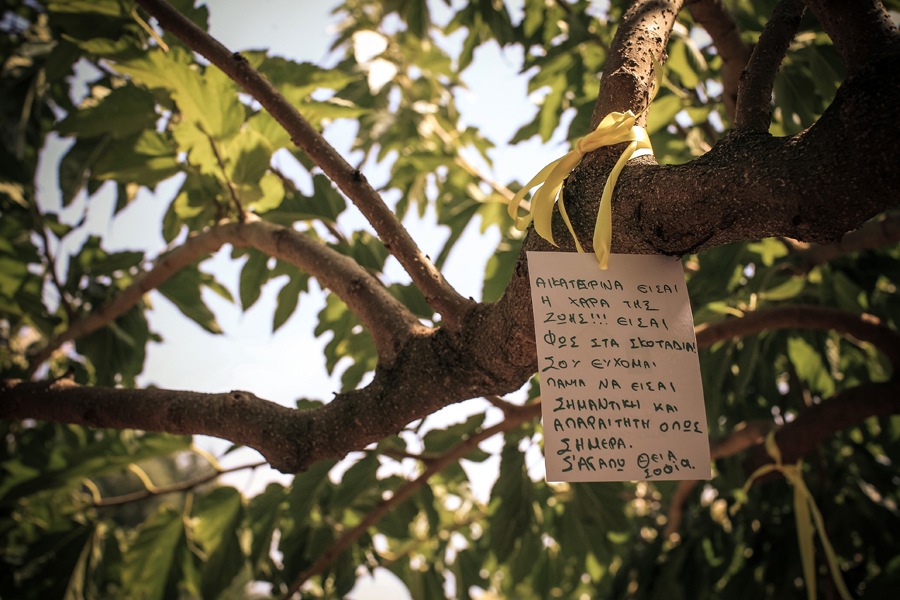 ΑΙΚΑΤΕΙΡΙΝΑ ΕΙΣΑΙ
Η ΧΑΡΑ ΤΗΣ
ΖΩΗΣ!!! ΕΙΣΑΙ
ΦΩΣ ΣΤΑ ΣΚΟΤΑΔΙΑ!
ΣΟΥ ΕΥΧΟΜΑΙ
ΠΑΝΤΑ ΝΑ ΕΙΣΑΙ
ΣΗΜΑΝΤΙΚΗ ΚΑΙ
ΑΠΑΡΑΙΤΗΤΗ ΟΠΩΣ
ΣΗΜΕΡΑ.
Σ'ΑΓΑΠΩ ΘΕΙΑ
ΣΟΦΙΑ.